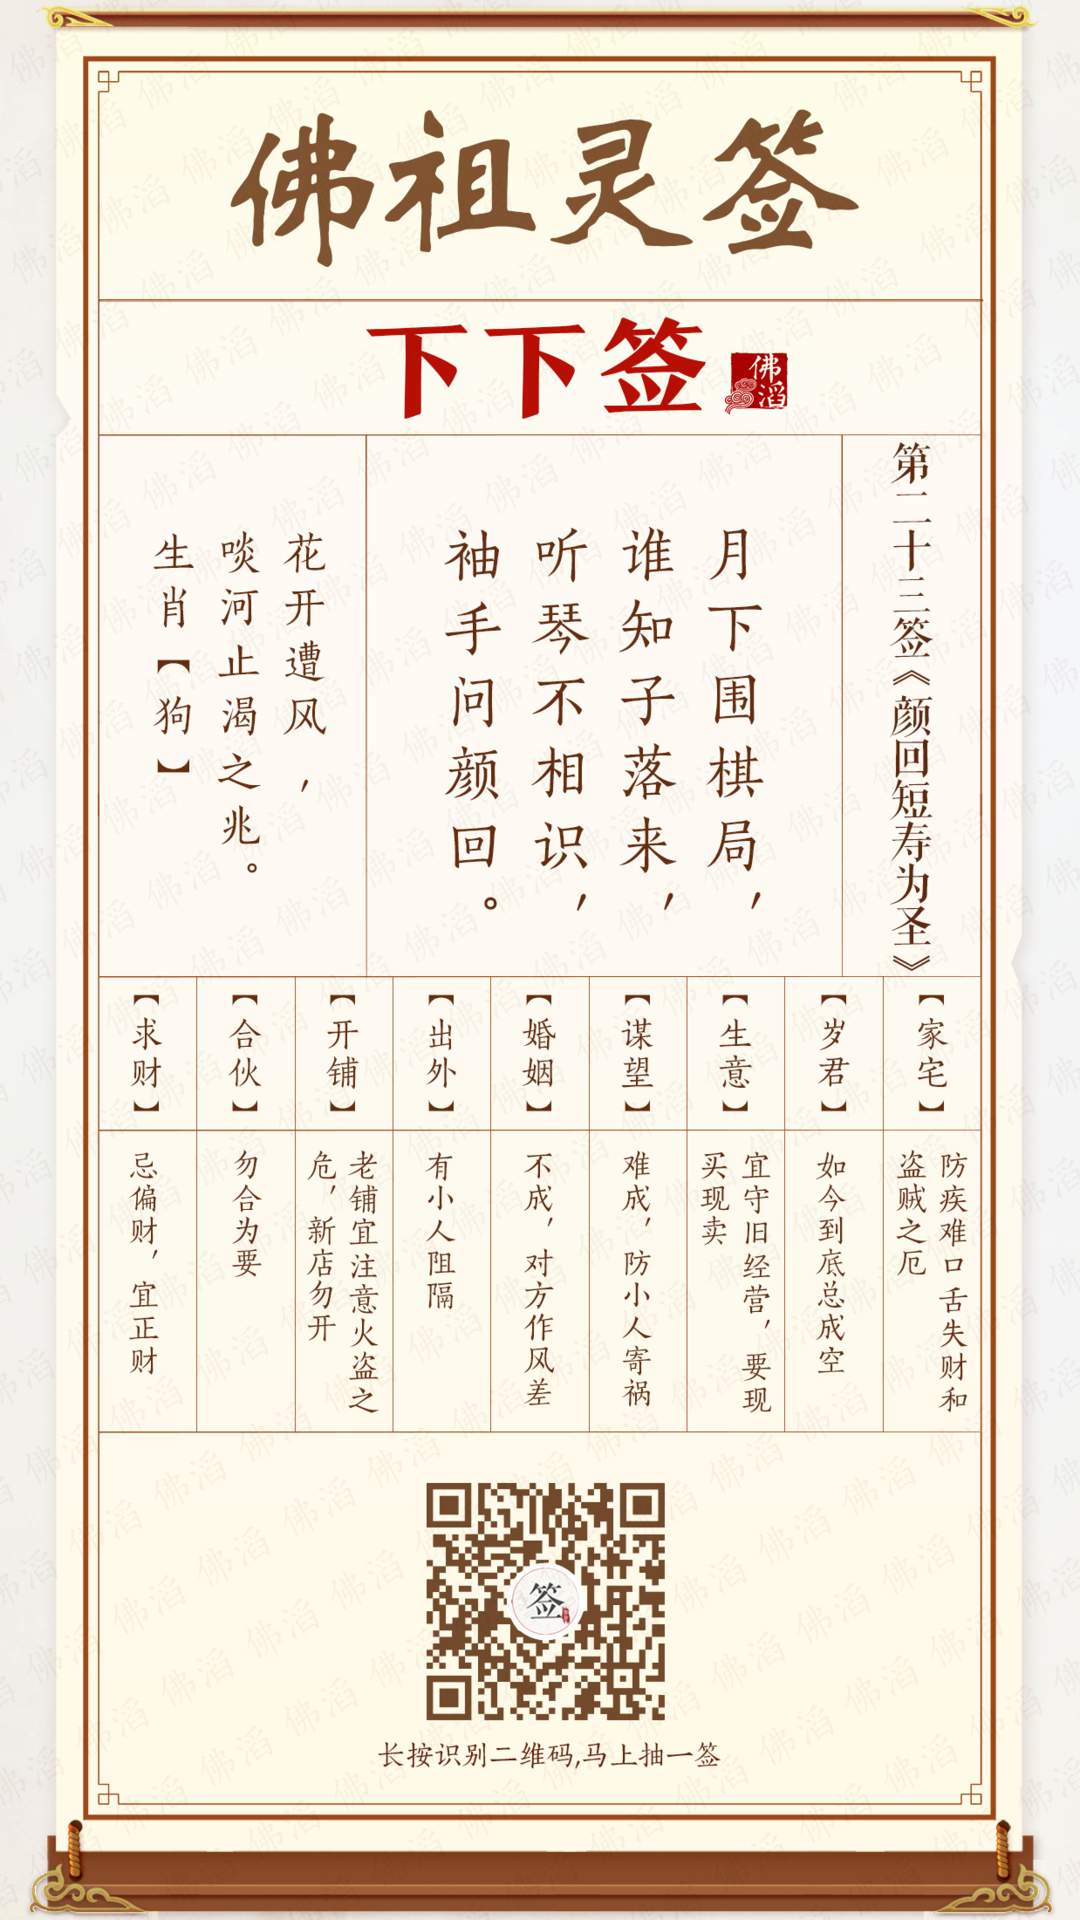 佛祖灵签
下下签
佛滔
第二十三签《颜回短寿为圣》
月下围棋局，
谁知子落来，
听琴不相识，
袖手问颜回。
花开遭风，
啖河止渴之兆。
生肖【狗】
【家宅】
防疾难口舌失财和
盗贼之厄
【岁君】
如今到底总成空
【生意】
宜守旧经营，要现
买现卖
【谋望】
难成，防小人寄祸
【婚姻】
不成，对方作风差
【出外】
有小人阻隔
【开铺】
老铺宜注意火盗之
危，新店勿开
【合伙】
勿合为要
【求财】
忌偏财，宜正财
签
长按识别二维码,马上抽一签